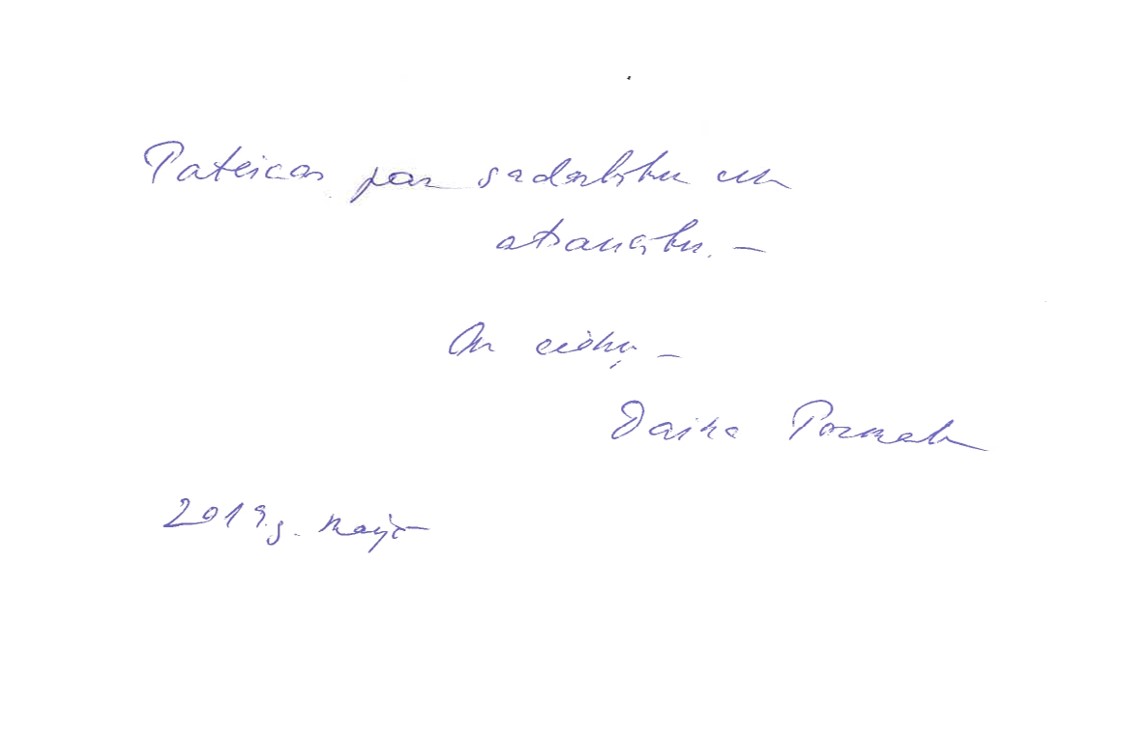 Pateicos par sadarbību un
atsaucību. –
Ar cieņu –
Daina
2019.g. maijā